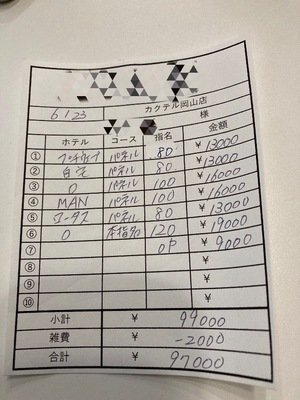 カクテル岡山店
6/23 様
ホテル コース 指名 金額
① パネル 80 ¥13000
② 白夜 パネル 80 ¥13000
③ O パネル 100 ¥16000
④ MAN パネル 100 ¥16000
⑤ パネル 80 ¥13000
⑥ O 本指名 120 ¥19000
⑦ OP ¥9000
⑧ ¥
⑨ ¥
⑩ ¥
小計 ¥ 99000
雑費 ¥ -2000
合計 ¥ 97000